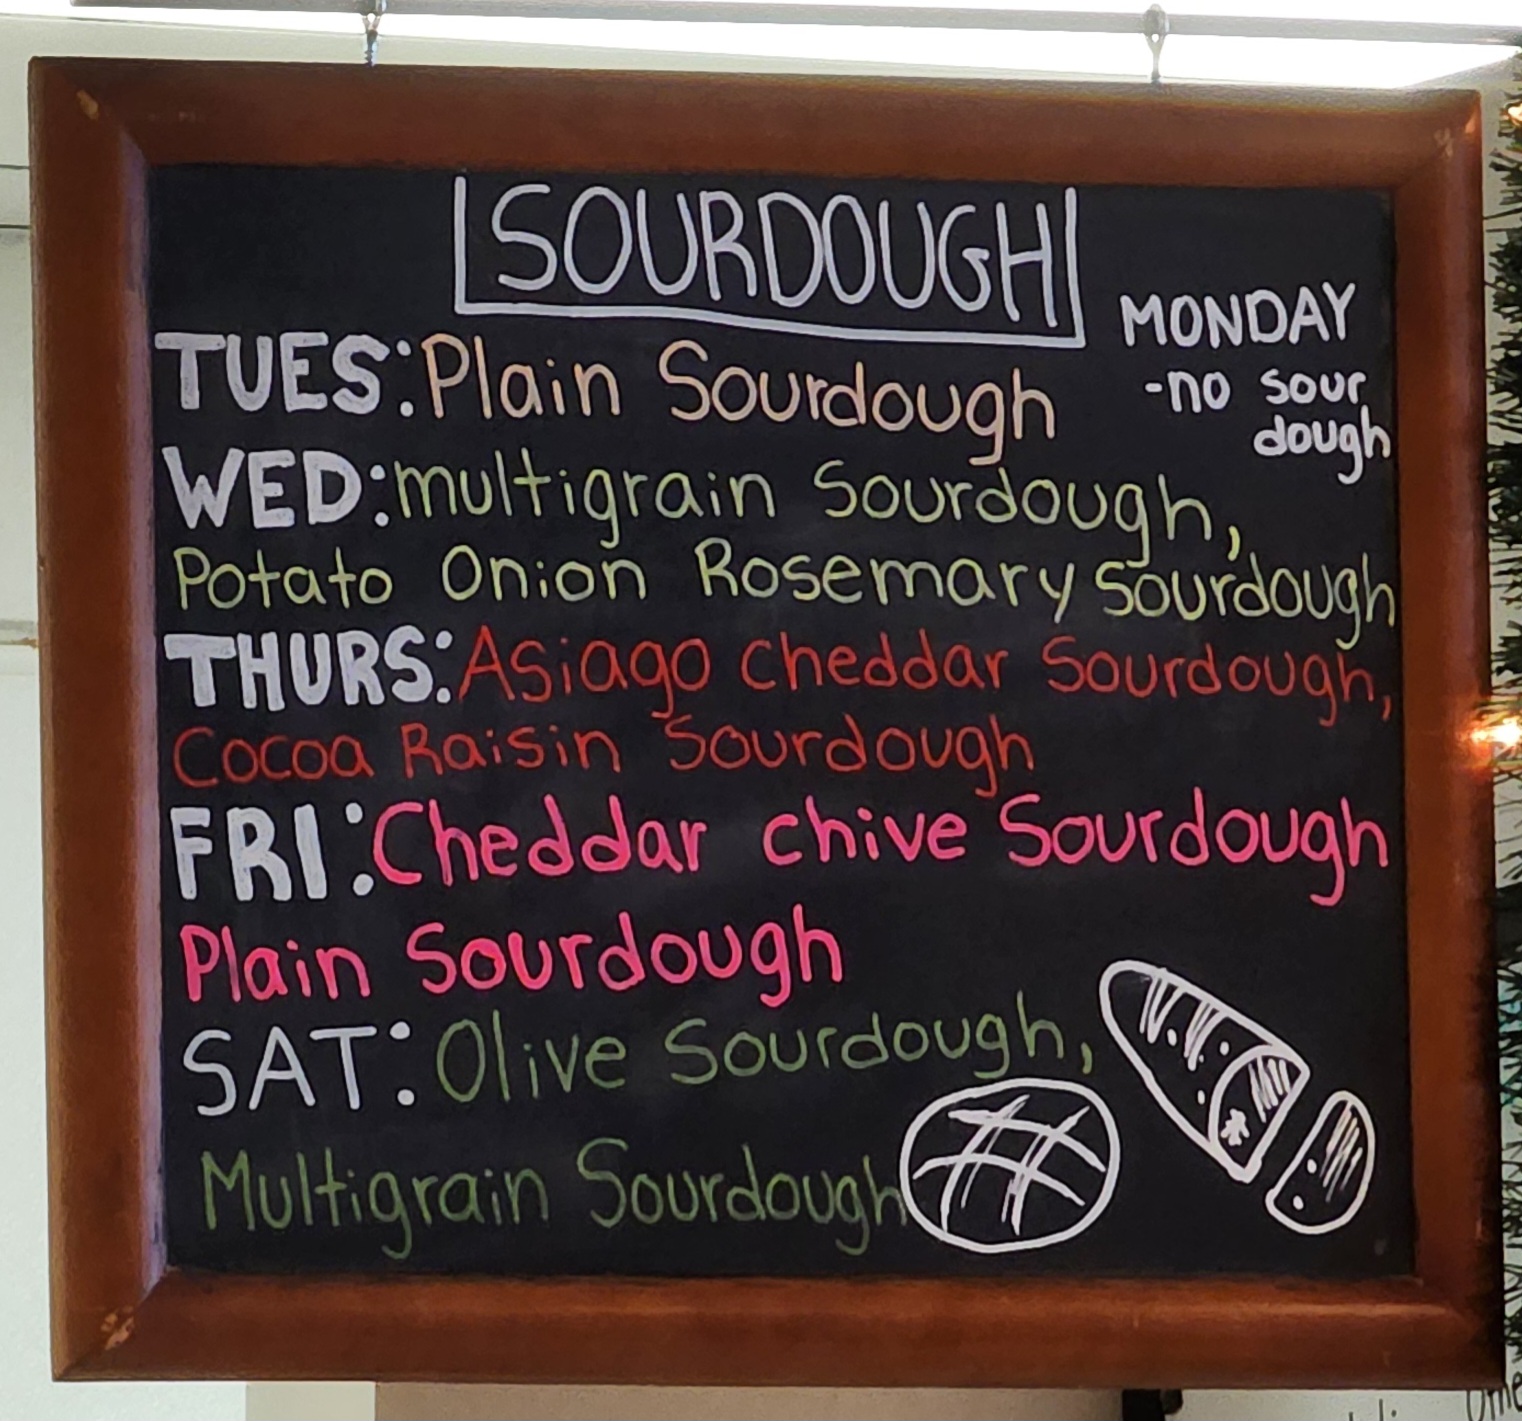 SOURDOUGH
MONDAY
-no sour
dough
TUES: Plain Sourdough
WED: multigrain Sourdough,
Potato Onion Rosemary Sourdough
THURS: Asiago Cheddar Sourdough,
Cocoa Raisin Sourdough
FRI: Cheddar chive Sourdough
Plain Sourdough
SAT: Olive Sourdough,
Multigrain Sourdough